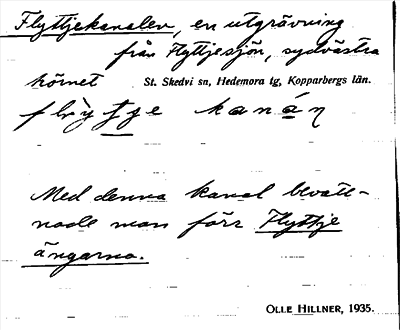 Flyttjekanalen, en utgrävning
från Flyttjesjön, sydvästra
hörnet St. Skedvi sn, Hedemora tg, Kopparbergs län.
Med denna kanal bevatt-
nade man förr Flyttje
ängarna.
OLLE HILLNER, 1935.